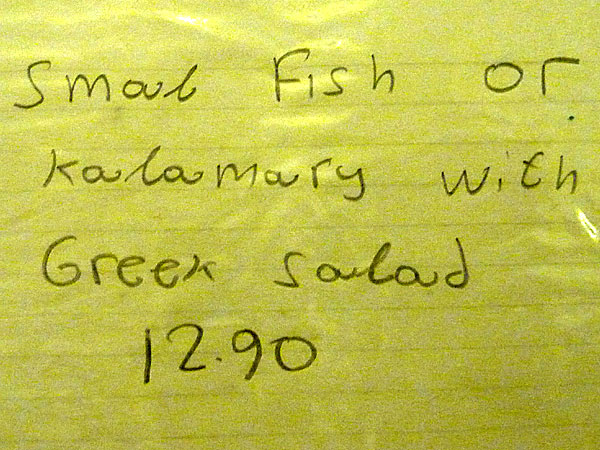 Smal Fish or
kalamary with
Greek salad
12.90